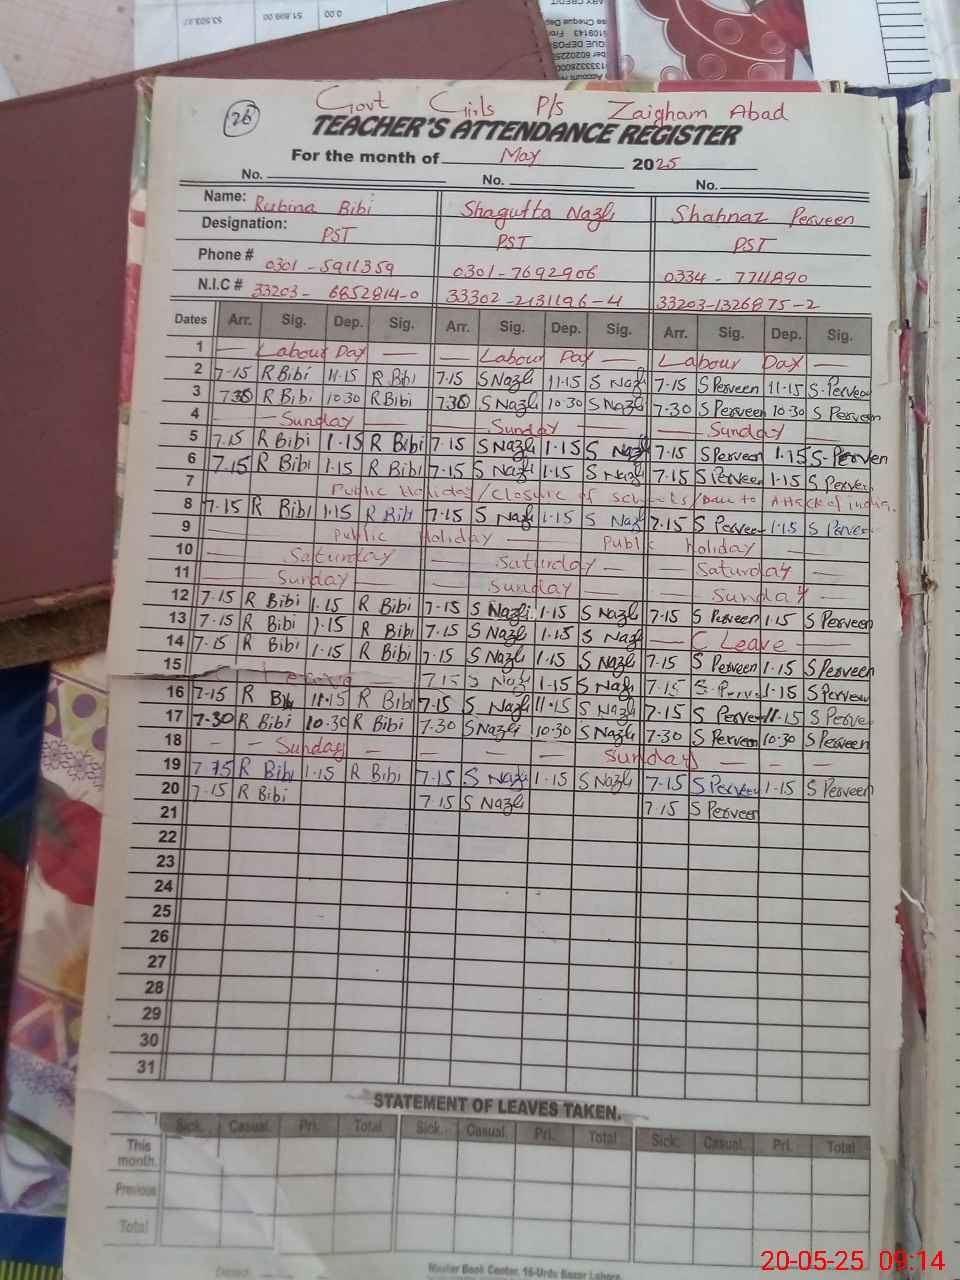 53,503.27 51,899.00 0.00
ARY CREDIT
se Cheque Dep
5109143 Fron
QUE DEPOS
ber 60202255
1333328000
Account N
26
Govt Girls P/s Zaigham Abad
TEACHER'S ATTENDANCE REGISTER
For the month of May 2025
No. No. No.
Name: Rubina Bibi Shagufta Nazli Shahnaz Perveen
Designation: PST PST PST
Phone # 0301-5911359 0301-7692906 0334-7711890
N.I.C # 33203-6852814-0 33302-2131196-4 33203-1326875-2
Dates Arr. Sig. Dep. Sig. Arr. Sig. Dep. Sig. Arr. Sig. Dep. Sig.
1 — Labour Day — — Labour Day — Labour Day —
2 7-15 R Bibi 11-15 R Bibi 7-15 S Nazli 11-15 S Nazli 7-15 S Perveen 11-15 S-Perveen
3 7.30 R Bibi 10-30 R Bibi 7.30 S Nazli 10-30 S Nazli 7-30 S Perveen 10-30 S Perveen
4 — Sunday — — Sunday — — Sunday —
5 7.15 R Bibi 1-15 R Bibi 7-15 S Nazli 1-15 S Nazli 7-15 S Perveen 1-15 S-Perveen
6 7.15 R Bibi 1-15 R Bibi 7-15 S Nazli 1-15 S Nazli 7-15 S Perveen 1-15 S Perveen
7 Public Holiday/closure of schools/Due to Attack of india.
8 7-15 R Bibi 1-15 R Bibi 7-15 S Nazli 1-15 S Nazli 7-15 S Perveen 1-15 S Perveen
9 — Public Holiday — Public Holiday —
10 — Saturday — — Saturday — — Saturday —
11 — Sunday — — Sunday — — Sunday —
12 7-15 R Bibi 1-15 R Bibi 7-15 S Nazli 1-15 S Nazli 7-15 S Perveen 1-15 S Perveen
13 7-15 R Bibi 1-15 R Bibi 7-15 S Nazli 1-15 S Nazli — C Leave —
14 7-15 R Bibi 1-15 R Bibi 7-15 S Nazli 1-15 S Nazli 7-15 S Perveen 1-15 S Perveen
15 7-15 S Nazli 1-15 S Nazli 7-15 S-Perveen 1-15 S Perveen
16 7-15 R Bibi 11-15 R Bibi 7-15 S Nazli 11-15 S Nazli 7-15 S Perveen 11-15 S Perveen
17 7-30 R Bibi 10-30 R Bibi 7-30 S Nazli 10-30 S Nazli 7-30 S Perveen 10-30 S Perveen
18 — — Sunday — — — — Sunday — — —
19 7-15 R Bibi 1-15 R Bibi 7-15 S Nazli 1-15 S Nazli 7-15 S Perveen 1-15 S Perveen
20 7-15 R Bibi 7-15 S Nazli 7-15 S Perveen
21
22
23
24
25
26
27
28
29
30
31
STATEMENT OF LEAVES TAKEN.
Sick. Casual. Pri. Total Sick. Casual. Pri. Total Sick. Casual. Pri. Total
This month.
Previous
Total
Master Book Center, 16-Urdu Bazar Lahore.
20-05-25 09:14